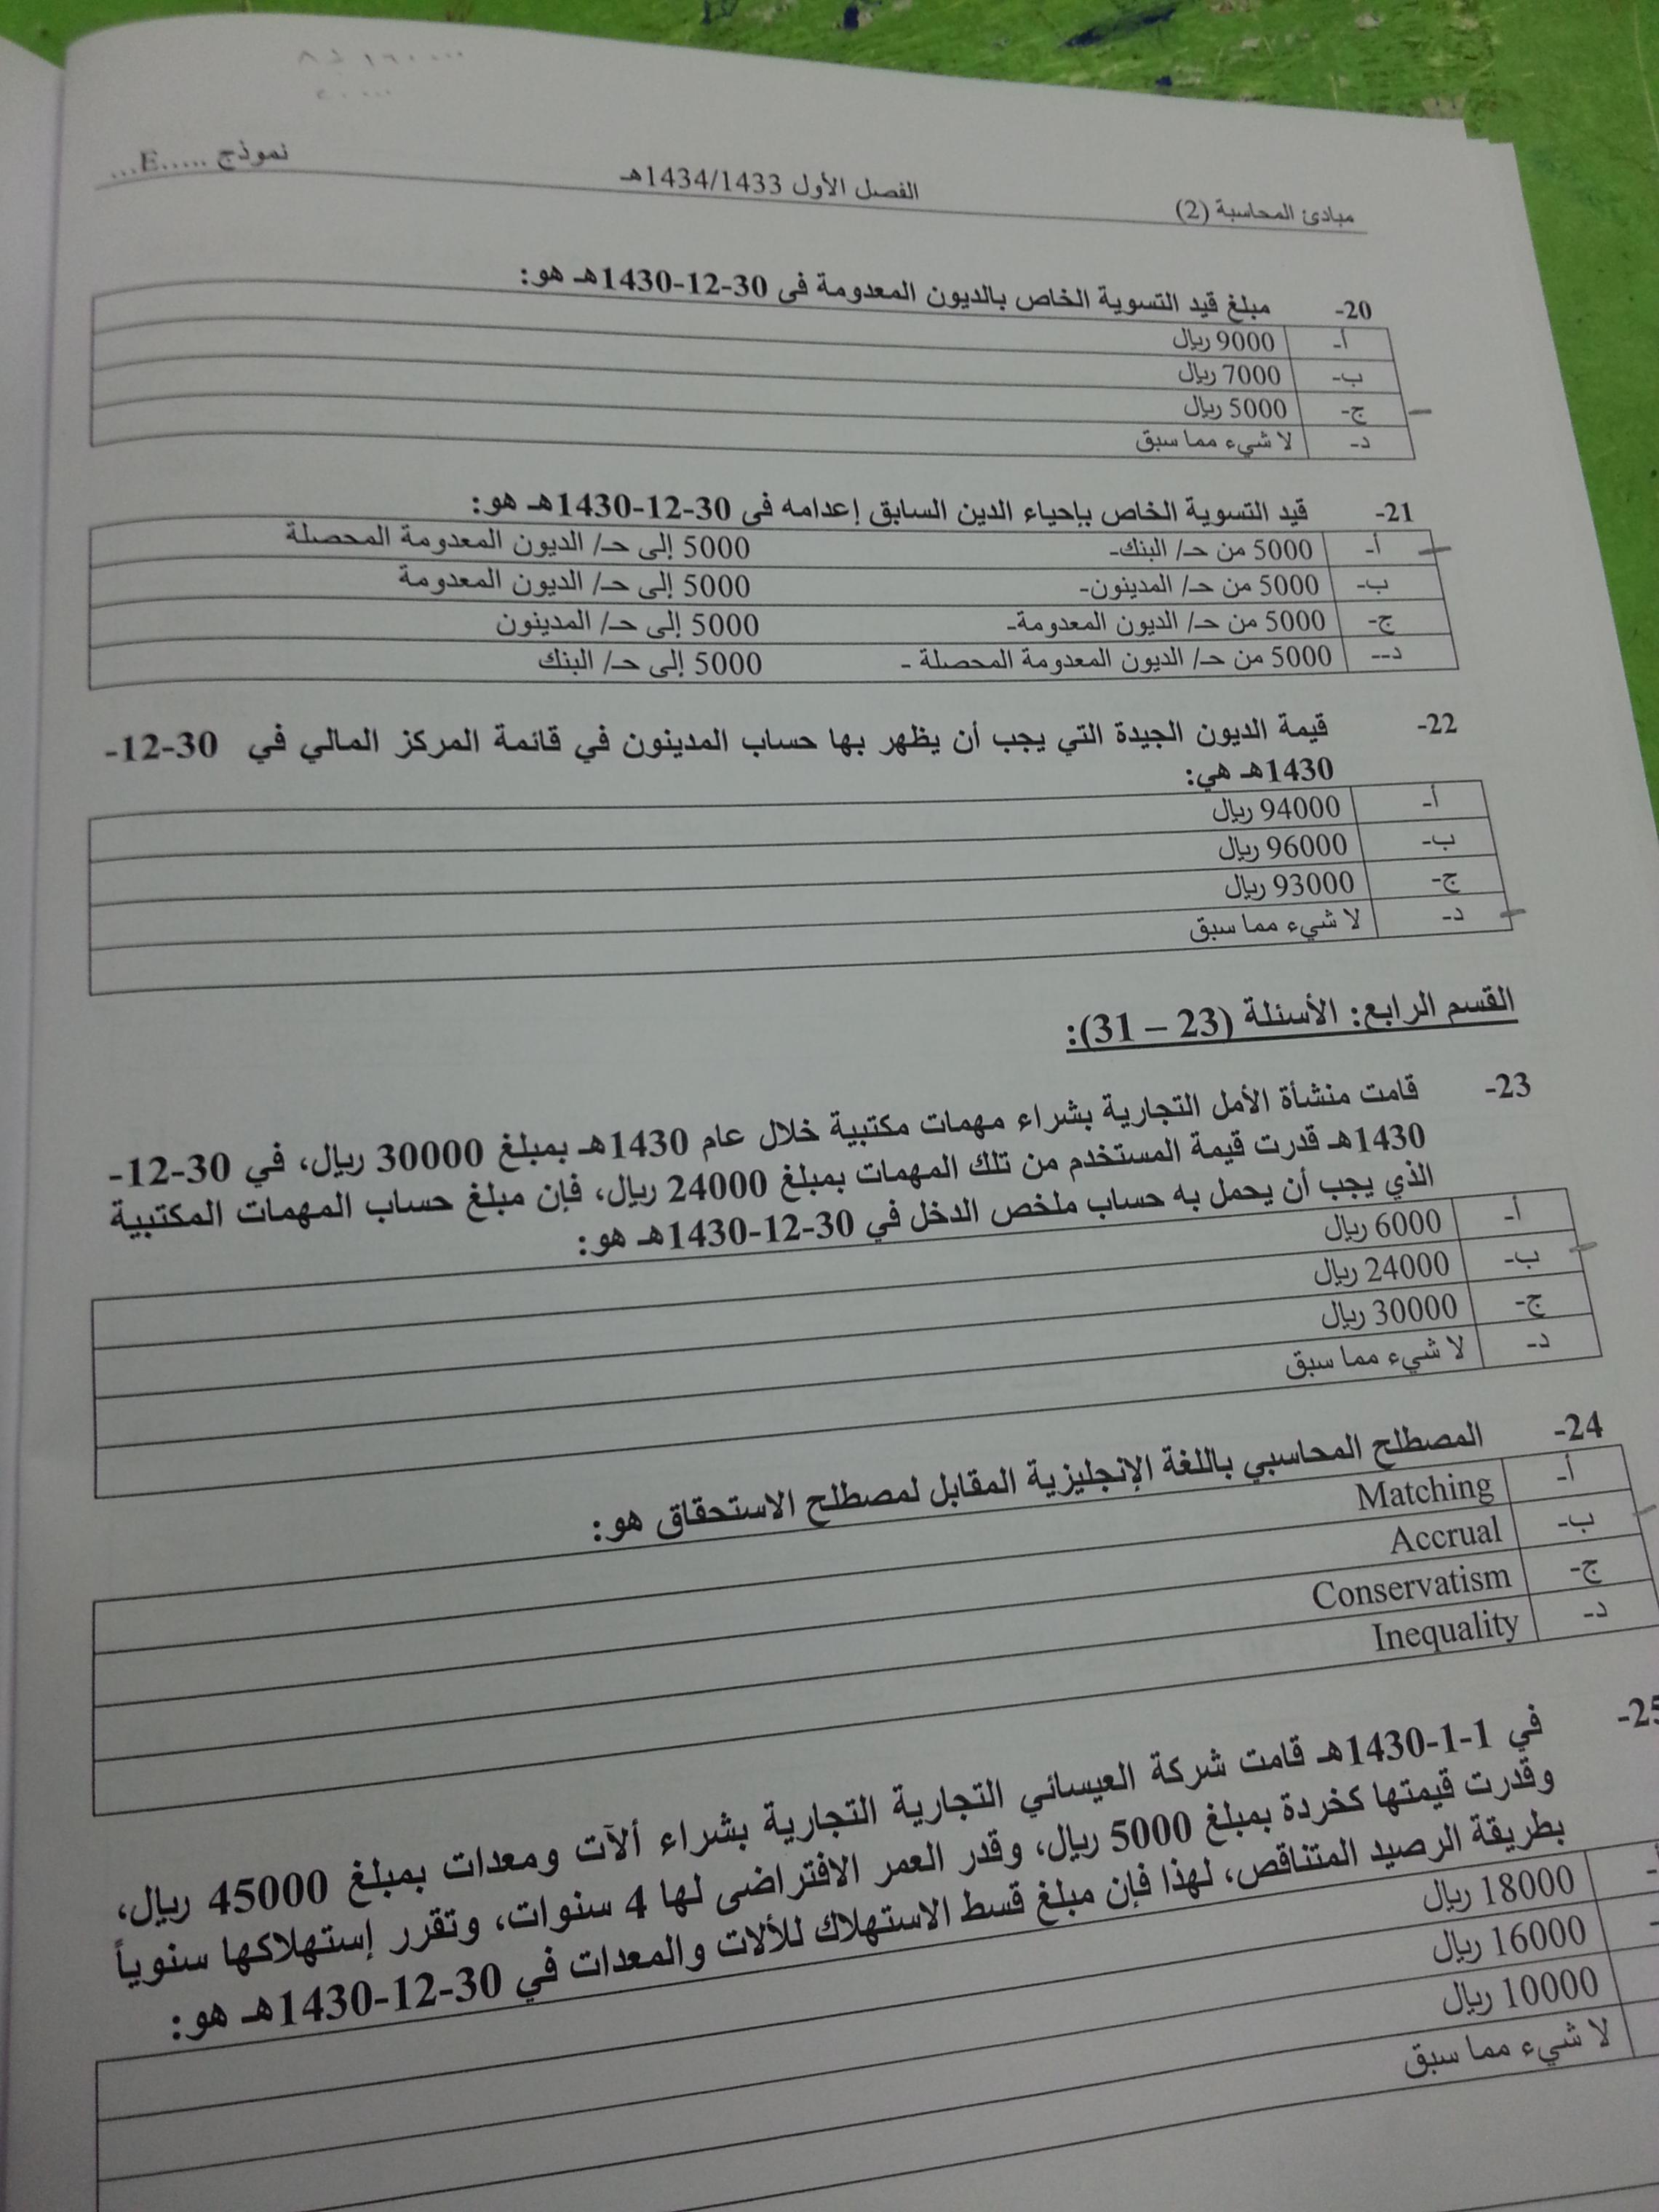 مبادئ المحاسبة (2) الفصل الأول 1434/1433هـ نموذج .....E...
20- مبلغ قيد التسوية الخاص بالديون المعدومة فى 30-12-1430هـ هو:
أ- 9000 ريال
ب- 7000 ريال
ج- 5000 ريال
د- لا شيء مما سبق
21- قيد التسوية الخاص بإحياء الدين السابق إعدامه فى 30-12-1430هـ هو:
أ- 5000 من حـ/ البنك- 5000 إلى حـ/ الديون المعدومة المحصلة
ب- 5000 من حـ/ المدينون- 5000 إلى حـ/ الديون المعدومة
ج- 5000 من حـ/ الديون المعدومة- 5000 إلى حـ/ المدينون
د-- 5000 من حـ/ الديون المعدومة المحصلة - 5000 إلى حـ/ البنك
22- قيمة الديون الجيدة التي يجب أن يظهر بها حساب المدينون في قائمة المركز المالي في 30-12-
1430هـ هي:
أ- 94000 ريال
ب- 96000 ريال
ج- 93000 ريال
د- لا شيء مما سبق
القسم الرابع: الأسئلة (23 – 31):
23- قامت منشأة الأمل التجارية بشراء مهمات مكتبية خلال عام 1430هـ بمبلغ 30000 ريال، في 30-12-
1430هـ قدرت قيمة المستخدم من تلك المهمات بمبلغ 24000 ريال، فإن مبلغ حساب المهمات المكتبية
الذي يجب أن يحمل به حساب ملخص الدخل في 30-12-1430هـ هو:
أ- 6000 ريال
ب- 24000 ريال
ج- 30000 ريال
د- لا شيء مما سبق
24- المصطلح المحاسبي باللغة الإنجليزية المقابل لمصطلح الاستحقاق هو:
أ- Matching
ب- Accrual
ج- Conservatism
د- Inequality
25- في 1-1-1430هـ قامت شركة العيسائي التجارية التجارية بشراء ألآت ومعدات بمبلغ 45000 ريال،
وقدرت قيمتها كخردة بمبلغ 5000 ريال، وقدر العمر الافتراضى لها 4 سنوات، وتقرر إستهلاكها سنوياً
بطريقة الرصيد المتناقص، لهذا فإن مبلغ قسط الاستهلاك للألات والمعدات في 30-12-1430هـ هو:
18000 ريال
16000 ريال
10000 ريال
لا شيء مما سبق